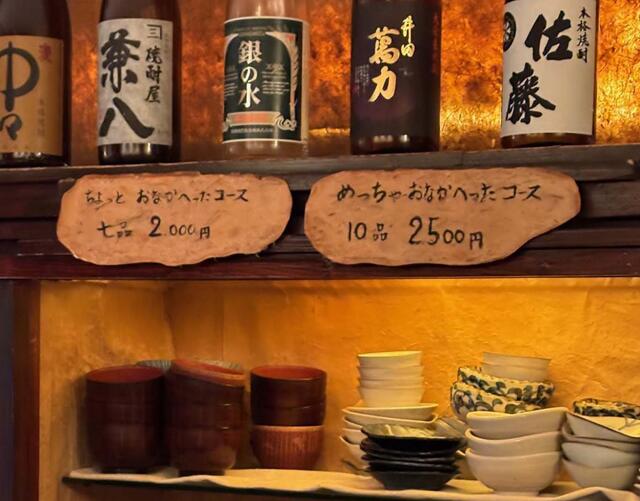 中々
三 焼酎屋
兼八
銀の水
萬力
本格焼酎
佐藤
ちょっと おなかへったコース
七品 2,000円
めっちゃおなかへったコース
10品 2500円